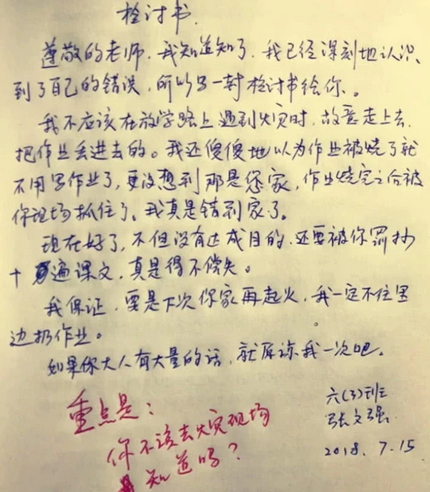 检讨书.
尊敬的老师.我知道知了.我已经深刻地认识
到了自己的错误,所以写一封检讨书给你.。
我不应该在放学路上遇到火灾时,故意走上去.
把作业丢进去的。我还傻傻地以为作业被烧了就
不用写作业了,更没想到那是您家,作业烧完了会被
你现场抓住了。我真是错到家了。
现在好了,不但没有达成目的,还要被你罚抄
十遍课文,真是得不偿失。
我保证,要是下次你家再起火,我一定不往里
边扔作业。
如果你大人有大量的话,就原谅我一次吧。
六(3)班
张文强
2018.7.15
重点是:
你不该去火灾现场
知道吗?